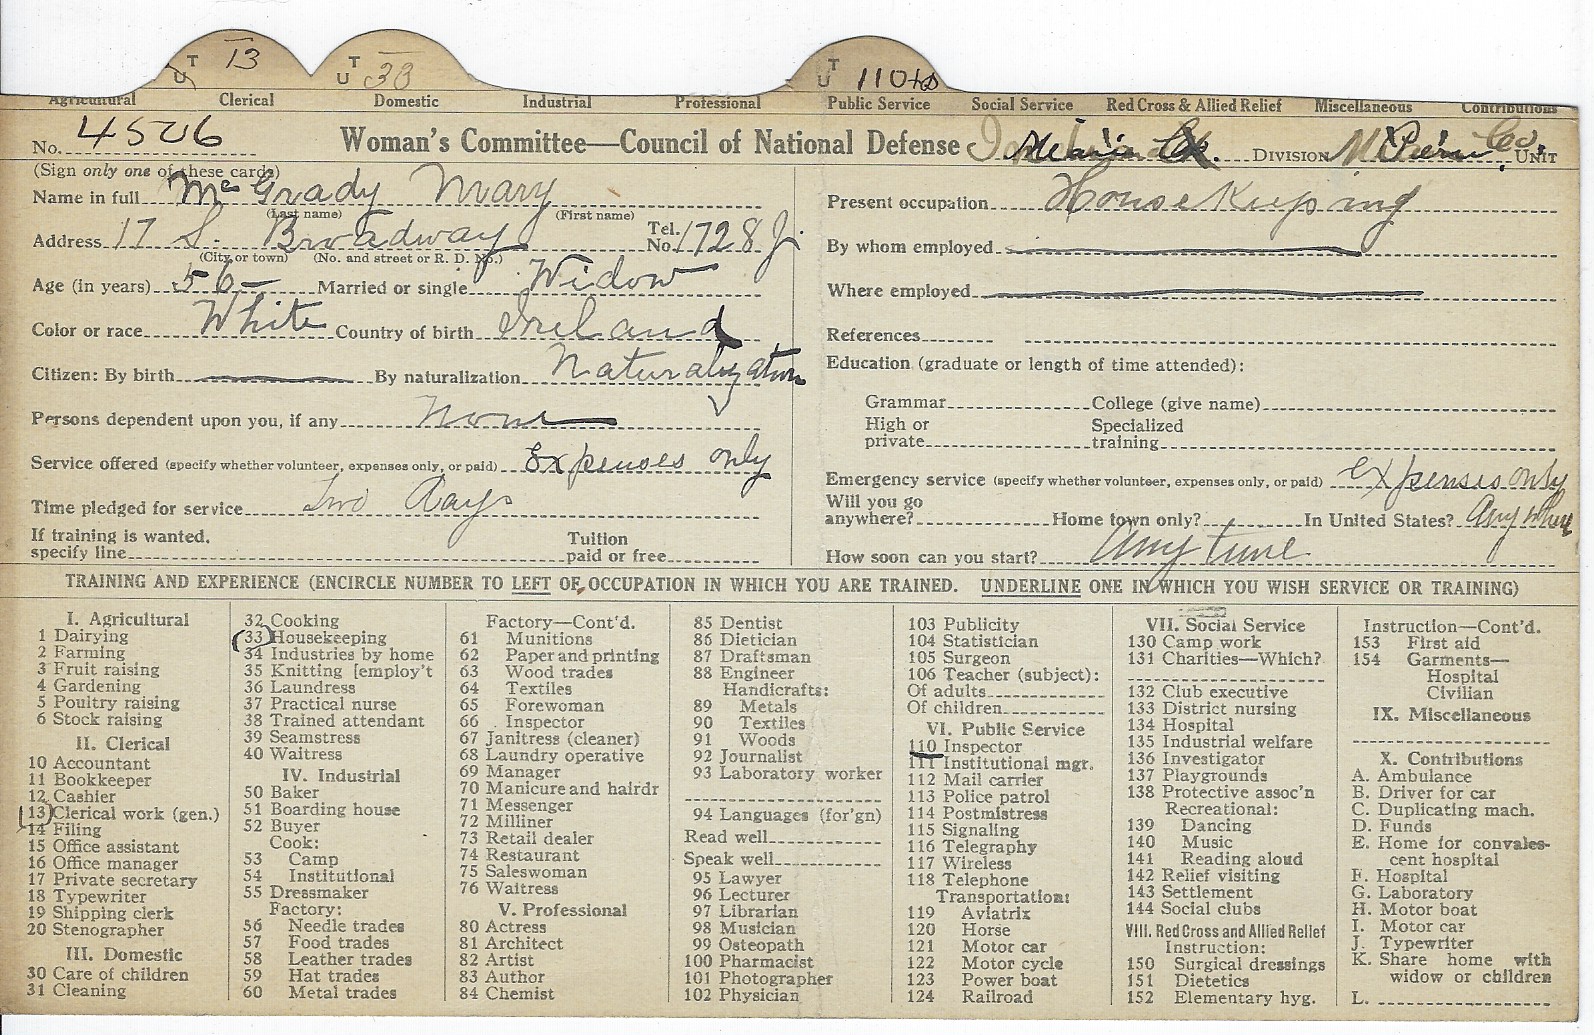 T U 13 T U 33 T U 110
Agricultural Clerical Domestic Industrial Professional Public Service Social Service Red Cross & Allied Relief Miscellaneous Contributions
No. 4506 Woman's Committee—Council of National Defense DIVISION Co. UNIT
(Sign only one of these cards)
Name in full McGrady Mary
(Last name) (First name)
Address 17 S. Broadway Tel. No. 1728 J.
(City or town) (No. and street or R. D. No.)
Age (in years) 56- Married or single Widow
Color or race White Country of birth Ireland
Citizen: By birth By naturalization Naturalization
Persons dependent upon you, if any None
Service offered (specify whether volunteer, expenses only, or paid) Expenses only
Time pledged for service Two days
If training is wanted, specify line Tuition paid or free
Present occupation House Keeping
By whom employed
Where employed
References
Education (graduate or length of time attended):
Grammar College (give name)
High or private Specialized training
Emergency service (specify whether volunteer, expenses only, or paid) expenses only
Will you go anywhere? Home town only? In United States? Any where
How soon can you start? Any time
TRAINING AND EXPERIENCE (ENCIRCLE NUMBER TO LEFT OF OCCUPATION IN WHICH YOU ARE TRAINED. UNDERLINE ONE IN WHICH YOU WISH SERVICE OR TRAINING)
I. Agricultural
1 Dairying
2 Farming
3 Fruit raising
4 Gardening
5 Poultry raising
6 Stock raising
II. Clerical
10 Accountant
11 Bookkeeper
12 Cashier
(13) Clerical work (gen.)
14 Filing
15 Office assistant
16 Office manager
17 Private secretary
18 Typewriter
19 Shipping clerk
20 Stenographer
III. Domestic
30 Care of children
31 Cleaning
32 Cooking
(33) Housekeeping
34 Industries by home
35 Knitting [employ't
36 Laundress
37 Practical nurse
38 Trained attendant
39 Seamstress
40 Waitress
IV. Industrial
50 Baker
51 Boarding house
52 Buyer
Cook:
53 Camp
54 Institutional
55 Dressmaker
Factory:
56 Needle trades
57 Food trades
58 Leather trades
59 Hat trades
60 Metal trades
Factory—Cont'd.
61 Munitions
62 Paper and printing
63 Wood trades
64 Textiles
65 Forewoman
66 Inspector
67 Janitress (cleaner)
68 Laundry operative
69 Manager
70 Manicure and hairdr
71 Messenger
72 Milliner
73 Retail dealer
74 Restaurant
75 Saleswoman
76 Waitress
V. Professional
80 Actress
81 Architect
82 Artist
83 Author
84 Chemist
85 Dentist
86 Dietician
87 Draftsman
88 Engineer
Handicrafts:
89 Metals
90 Textiles
91 Woods
92 Journalist
93 Laboratory worker
94 Languages (for'gn)
Read well
Speak well
95 Lawyer
96 Lecturer
97 Librarian
98 Musician
99 Osteopath
100 Pharmacist
101 Photographer
102 Physician
103 Publicity
104 Statistician
105 Surgeon
106 Teacher (subject):
Of adults
Of children
VI. Public Service
110 Inspector
111 Institutional mgr.
112 Mail carrier
113 Police patrol
114 Postmistress
115 Signaling
116 Telegraphy
117 Wireless
118 Telephone
Transportation:
119 Aviatrix
120 Horse
121 Motor car
122 Motor cycle
123 Power boat
124 Railroad
VII. Social Service
130 Camp work
131 Charities—Which?
132 Club executive
133 District nursing
134 Hospital
135 Industrial welfare
136 Investigator
137 Playgrounds
138 Protective assoc'n
Recreational:
139 Dancing
140 Music
141 Reading aloud
142 Relief visiting
143 Settlement
144 Social clubs
VIII. Red Cross and Allied Relief
Instruction:
150 Surgical dressings
151 Dietetics
152 Elementary hyg.
Instruction—Cont'd.
153 First aid
154 Garments—
Hospital
Civilian
IX. Miscellaneous
X. Contributions
A. Ambulance
B. Driver for car
C. Duplicating mach.
D. Funds
E. Home for convales-
cent hospital
F. Hospital
G. Laboratory
H. Motor boat
I. Motor car
J. Typewriter
K. Share home with
widow or children
L.